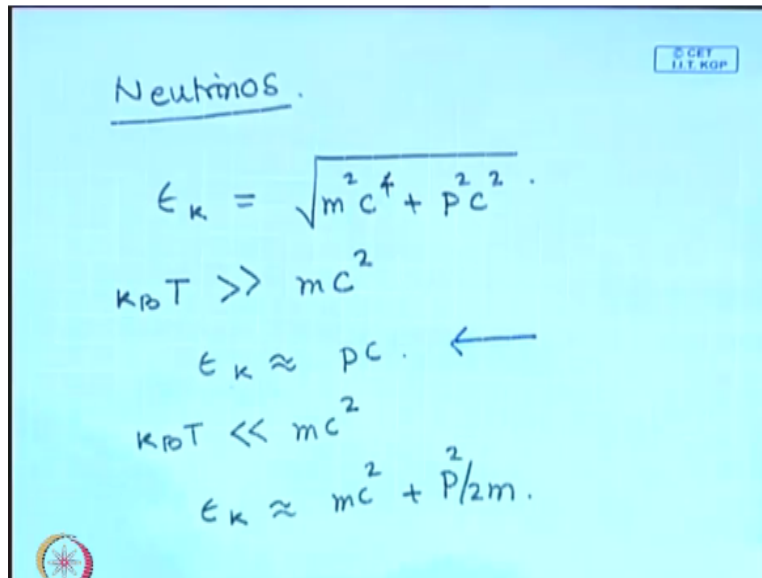 © CET
I.I.T. KGP
Neutrinos.
ϵ_k = √(m²c⁴ + p²c²).
k_B T >> mc²
ϵ_k ≈ pc. ←
k_B T << mc²
ϵ_k ≈ mc² + p²/2m.